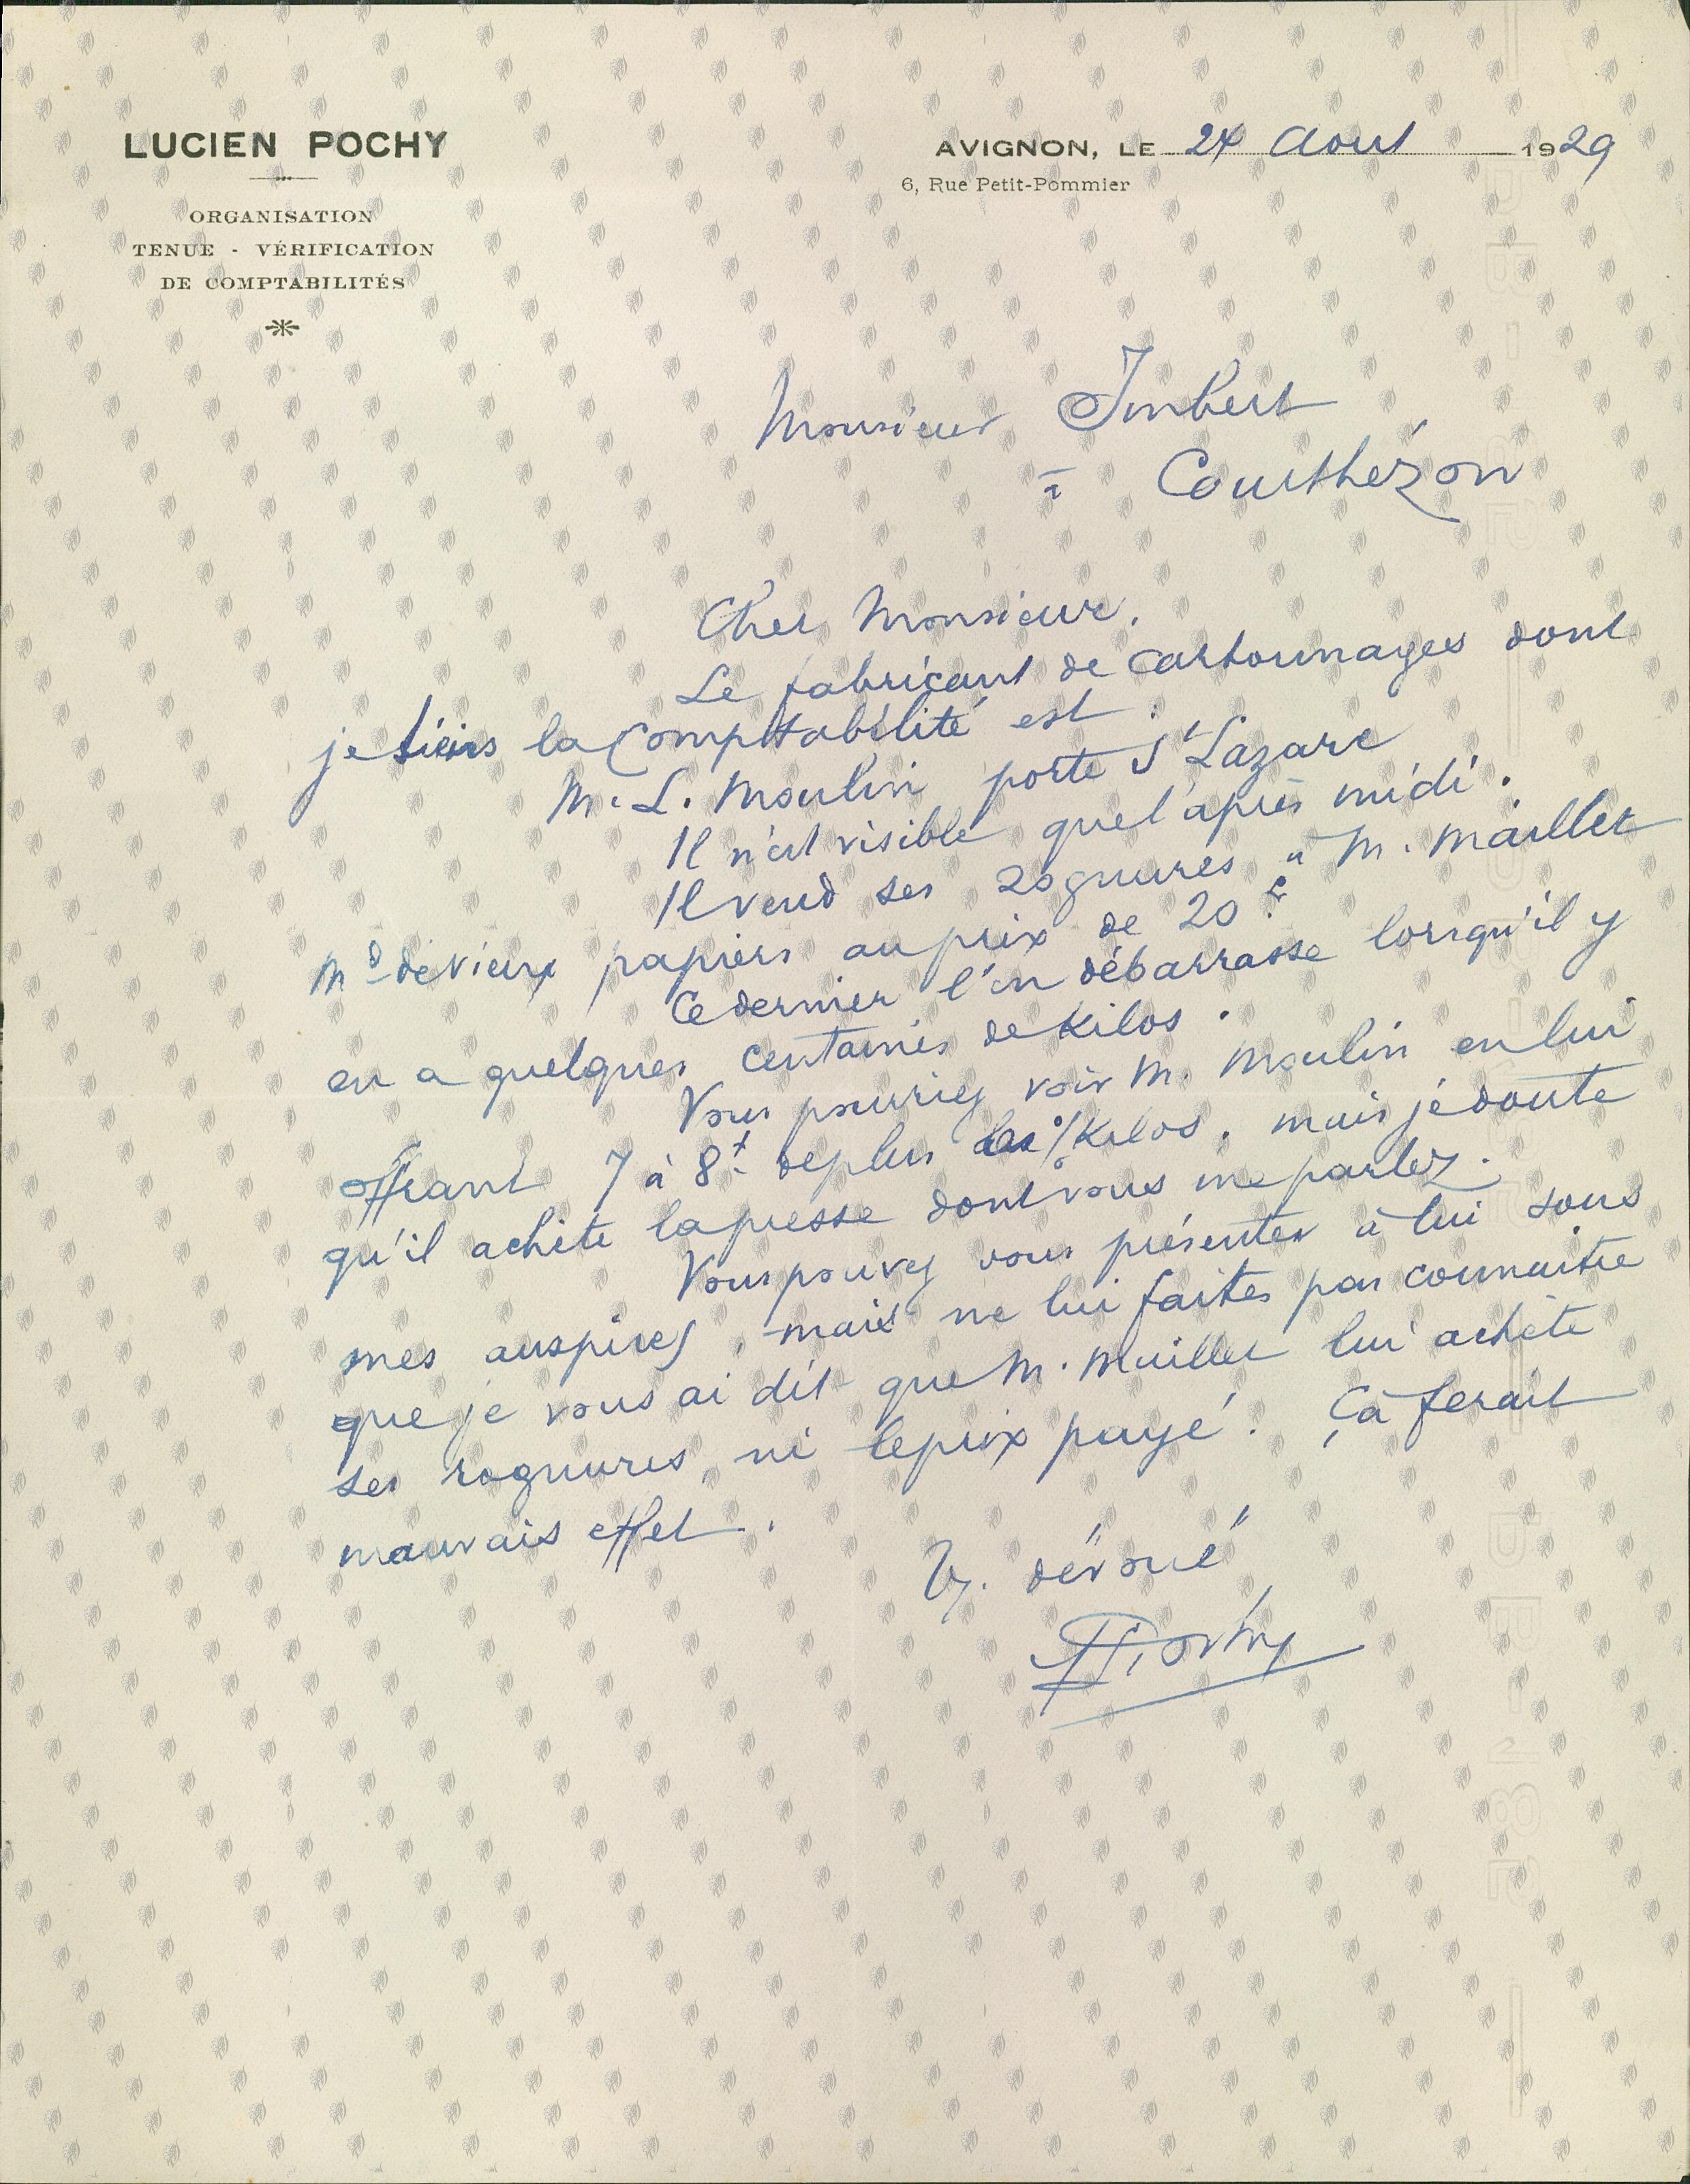 LUCIEN POCHY
ORGANISATION
TENUE - VÉRIFICATION
DE COMPTABILITÉS
AVIGNON, LE 24 Aout 1929
6, Rue Petit-Pommier
Monsieur Imbert
à Courthézon
Cher Monsieur,
Le fabricant de cartonnages dont
je tiens la comptabilité est :
M. L. Moulin porte St Lazare
Il n'est visible que l'après midi.
Il vend ses rognures à M. Maillet
Md de vieux papiers au prix de 20 f
Ce dernier l'en débarrasse lorsqu'il y
en a quelques centaines de kilos.
Vous pouriez voir M. Moulin en lui
offrant 7 à 8 f de plus les % kilos. mais je doute
qu'il achète la presse dont vous me parlez.
Vous pouvez vous présenter à lui sous
mes auspices, mais ne lui faites pas connaitre
que je vous ai dit que M. Maillet lui achète
ses rognures, ni le prix payé. Ça ferait
mauvais effet.
V. dévoué
Pochy